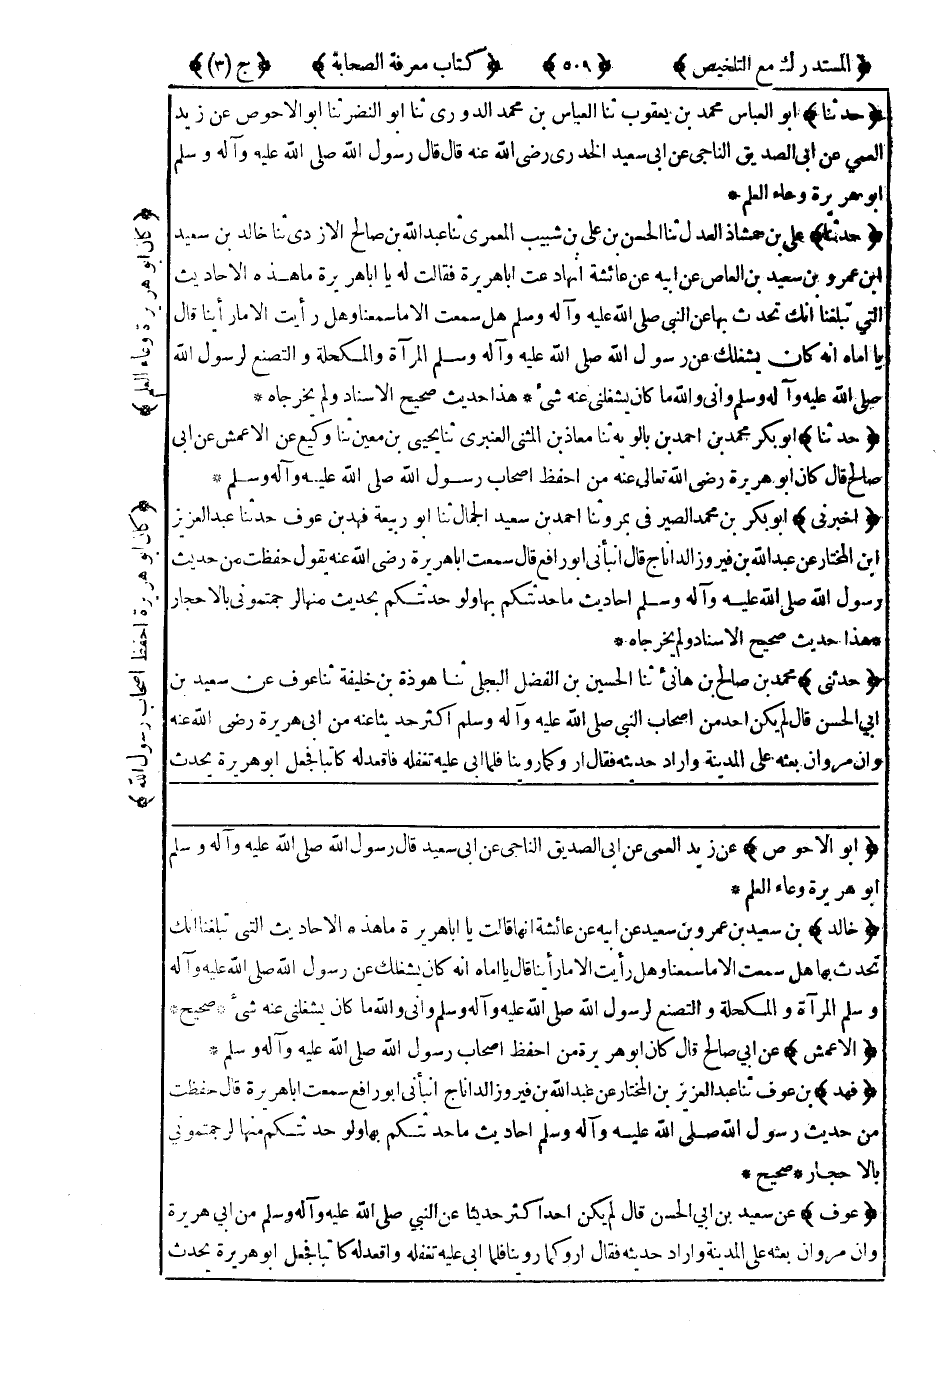 ﴿المستدرك مع التلخيص﴾ ﴿٥٠٩﴾ ﴿كتاب معرفة الصحابة﴾ ﴿ج (٣)﴾
﴿حدثنا﴾ ابو العباس محمد بن يعقوب ثنا العباس بن محمد الدورى ثنا ابو النضر ثنا ابو الاحوص عن زيد
العمي عن ابى الصديق الناجى عن ابى سعيد الخدرى رضى الله عنه قال قال رسول الله صلى الله عليه وآله وسلم
ابو هريرة وعاء العلم *
﴿حدثنا﴾ على بن حمشاذ العدل ثنا الحسن بن على بن شبيب المعمرى ثنا عبدالله بن صالح الازدى ثنا خالد بن سعيد
ابن عمرو بن سعيد بن العاص عن ابيه عن عائشة انها دعت اباهريرة فقالت له يا اباهريرة ماهذه الاحاديث
التي تبلغنا انك تحدث بها عن النبى صلى الله عليه وآله وسلم هل سمعت الا ما سمعنا وهل رأيت الا ما رأينا قال
يا اماه انه كان يشغلك عن رسول الله صلى الله عليه وآله وسلم المرآة والمكحلة والتصنع لرسول الله
صلى الله عليه وآله وسلم وانى والله ما كان يشغلنى عنه شئ * هذا حديث صحيح الاسناد ولم يخرجاه *
﴿حدثنا﴾ ابوبكر محمد بن احمد بن بالويه ثنا معاذ بن المثنى العنبرى ثنا يحيى بن معين ثنا وكيع عن الاعمش عن ابى
صالح قال كان ابو هريرة رضى الله تعالى عنه من احفظ اصحاب رسول الله صلى الله عليه وآله وسلم *
﴿اخبرنى﴾ ابوبكر بن محمد الصيرفى بمرو ثنا احمد بن سعيد الجمال ثنا ابو ربيعة فهد بن عوف حدثنا عبدالعزيز
ابن المختار عن عبدالله بن فيروز الداناج قال انبأنى ابو رافع قال سمعت اباهريرة رضى الله عنه يقول حفظت من حديث
رسول الله صلى الله عليه وآله وسلم احاديث ما حدثتكم بها ولو حدثتكم بحديث منها لرجمتمونى بالاحجار
*هذا حديث صحيح الاسناد ولم يخرجاه *
﴿حدثنى﴾ محمد بن صالح بن هانئ ثنا الحسين بن الفضل البجلى ثنا هوذة بن خليفة ثنا عوف عن سعيد بن
ابي الحسن قال لم يكن احد من اصحاب النبى صلى الله عليه وآله وسلم اكثر حديثا عنه من ابى هريرة رضى الله عنه
وان مروان بعثه على المدينة واراد حديثه فقال ارو كما روينا فلما ابى عليه تغفله فاقعدله كاتبا فجعل ابو هريرة يحدث
﴿ابو الاحوص﴾ عن زيد العمى عن ابى الصديق الناجى عن ابى سعيد قال رسول الله صلى الله عليه وآله وسلم
ابو هريرة وعاء العلم *
﴿خالد﴾ بن سعيد بن عمرو بن سعيد عن ابيه عن عائشة انها قالت يا اباهريرة ماهذه الاحاديث التى تبلغنا انك
تحدث بها هل سمعت الا ما سمعنا وهل رأيت الا ما رأينا قال يا اماه انه كان يشغلك عن رسول الله صلى الله عليه وآله
وسلم المرآة والمكحلة والتصنع لرسول الله صلى الله عليه وآله وسلم وانى والله ما كان يشغلنى عنه شئ *صحيح*
﴿الاعمش﴾ عن ابي صالح قال كان ابو هريرة من احفظ اصحاب رسول الله صلى الله عليه وآله وسلم *
﴿فهد﴾ بن عوف ثنا عبدالعزيز بن المختار عن عبدالله بن فيروز الداناج انبأنى ابو رافع سمعت اباهريرة قال حفظت
من حديث رسول الله صلى الله عليه وآله وسلم احاديث ما حدثتكم بها ولو حدثتكم منها لرجمتموني
بالاحجار *صحيح *
﴿عوف﴾ عن سعيد بن ابي الحسن قال لم يكن احد اكثر حديثا عن النبي صلى الله عليه وآله وسلم من ابي هريرة
وان مروان بعثه على المدينة واراد حديثه فقال ارو كما روينا فلما ابى عليه تغفله واقعدله كاتبا فجعل ابو هريرة يحدث
﴿كان ابو هريرة وعاء العلم﴾
﴿كان ابو هريرة احفظ اصحاب رسول الله﴾